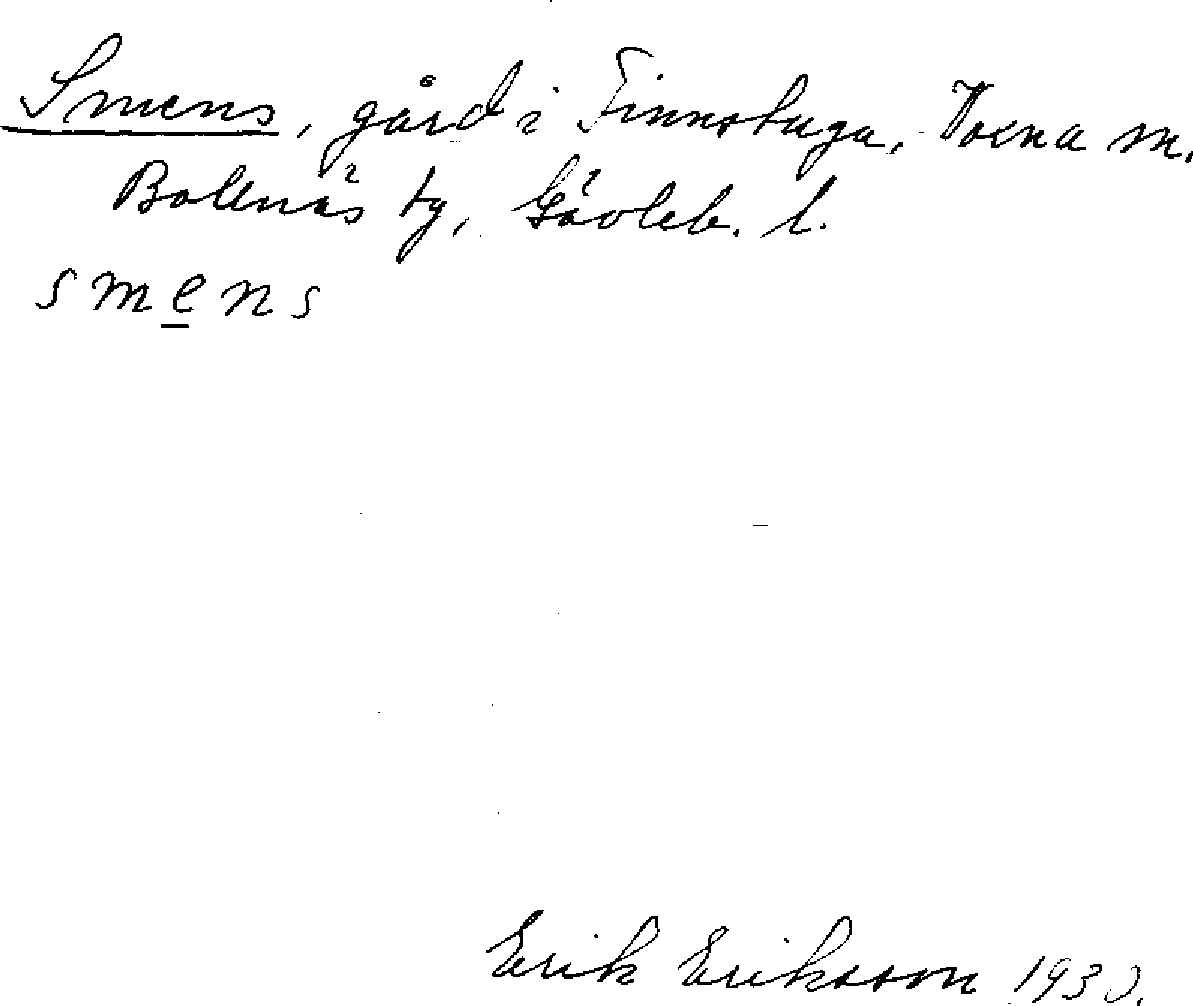 Smens, gård i Finnstuga, Voxna m.
Bollnäs tg, Gävleb. l.
smens
Erik Eriksson 1930.